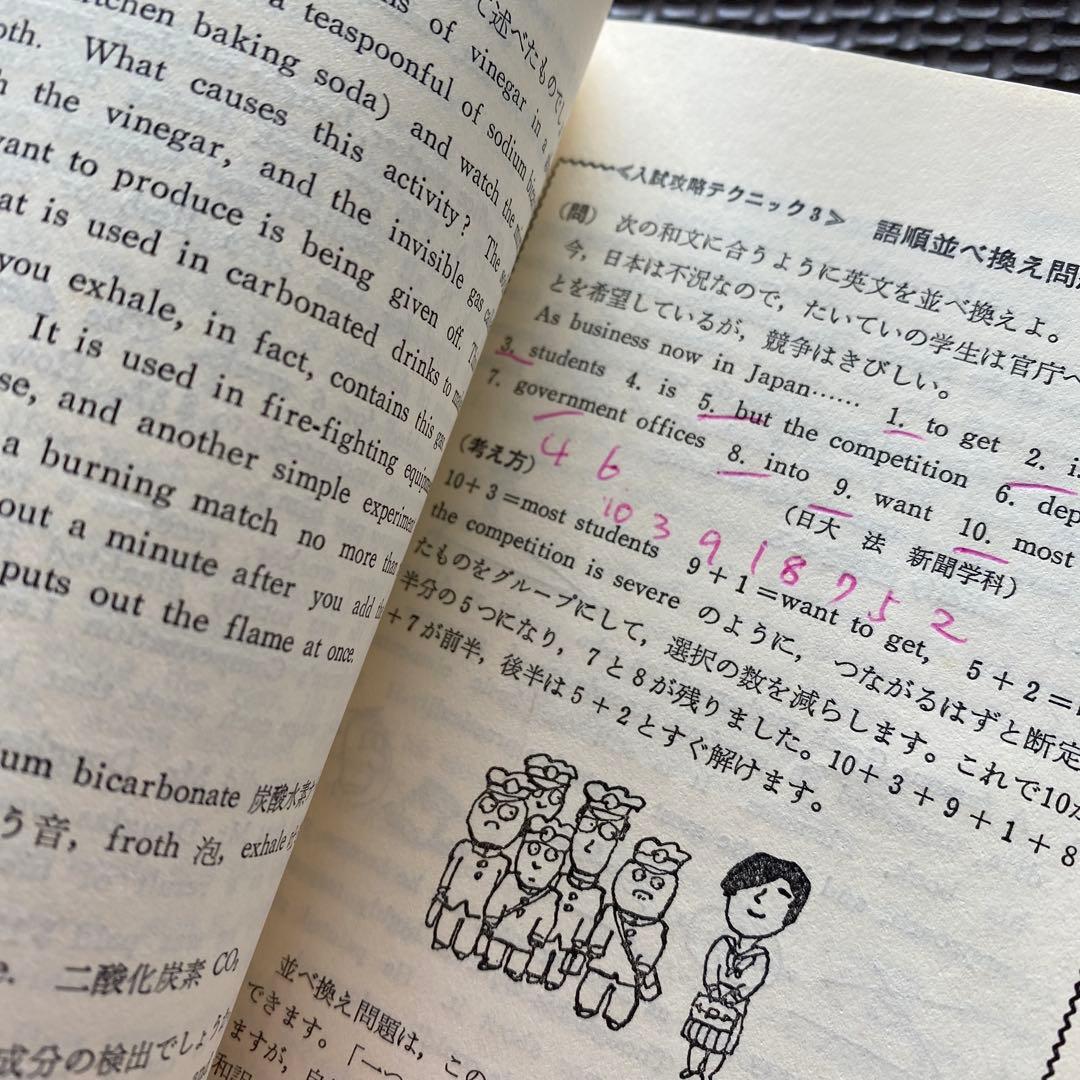 て述べたもので
of vinegar in a
a teaspoonful of sodium
kitchen baking soda) and watch the
What causes this activity? The
the vinegar, and the invisible gas
want to produce is being given off.
is used in carbonated drinks to
you exhale, in fact, contains this gas
It is used in fire-fighting
and another simple experiment
a burning match no more than
out a minute after you add
puts out the flame at once.
bicarbonate 炭酸水素
う音, froth 泡, exhale
二酸化炭素 CO₂
成分の検出でしょう
≪入試攻略テクニック3≫ 語順並べ換え問
(問) 次の和文に合うように英文を並べ換えよ。
今,日本は不況なので,たいていの学生は官庁へ
とを希望しているが,競争はきびしい。
As business now in Japan…… 1. to get 2.
3. students 4. is 5. but the competition 6.
7. government offices 8. into 9. want 10. most
(日大 法 新聞学科)
4 6
10 3 9 1 8 7 5 2
(考え方)
10+3=most students 9+1=want to get, 5+2=
the competition is severe のように, つながるはずと断定
たものをグループにして, 選択の数を減らします。これで10が
半分の5つになり, 7と8が残りました。10+3+9+1+8
+7が前半, 後半は5+2とすぐ解けます。
並べ換え問題は, この
できます。「一つ
ますが,
和訳